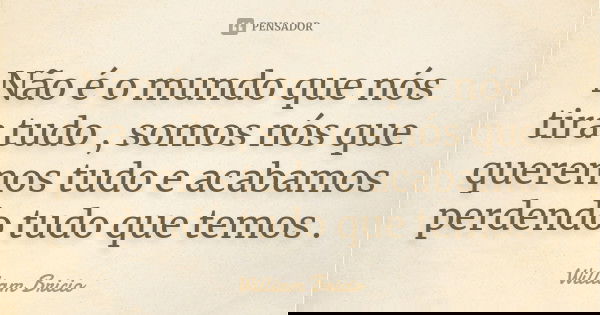 PENSADOR
Não é o mundo que nós
tira tudo , somos nós que
queremos tudo e acabamos
perdendo tudo que temos .
William Bricio